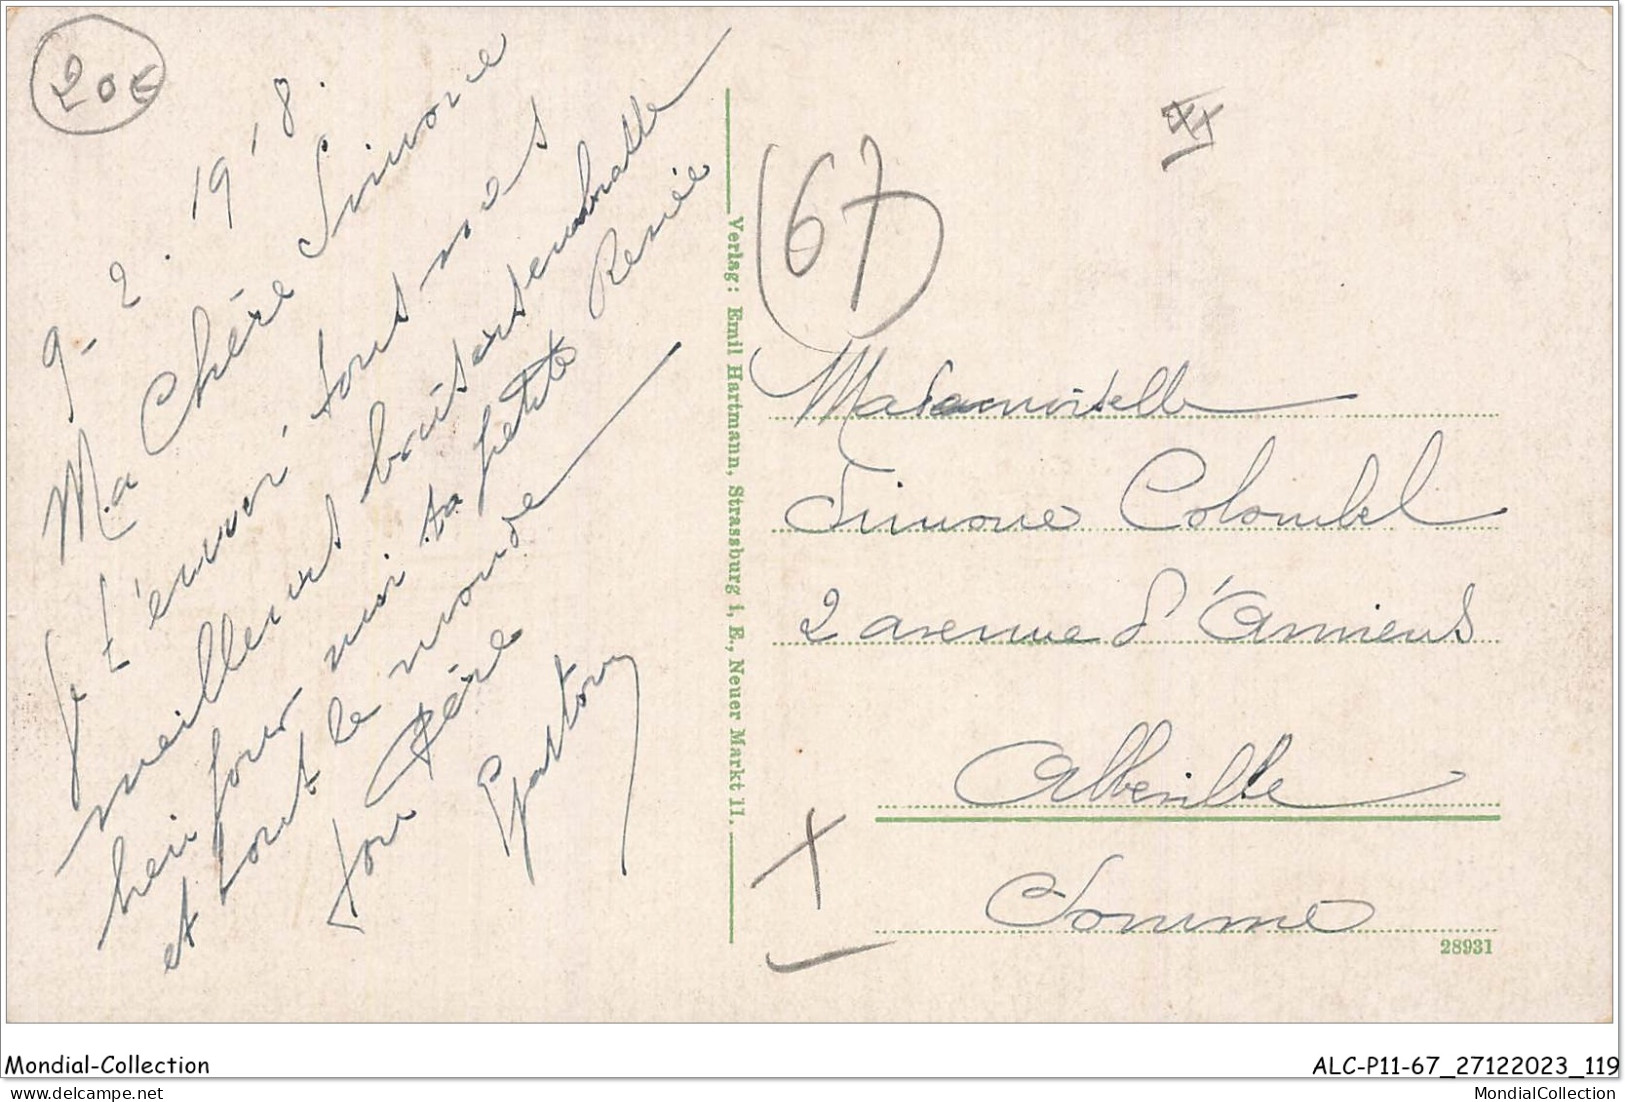 20€
9-2.1918.
Ma Chère Simone
Je t'envoi tous mes
meilleurs baisers embrasse
bein pour moi ta petite Renée
et tout le monde
ton Père
Gaston
Verlag: Emil Hartmann, Strassburg i. E., Neuer Markt 11.
67
Mademoiselle
Simone Colombel
2 avenue d'Amiens
Abbeville
Somme
28931
Mondial-Collection
ALC-P11-67_27122023_119
MondialCollection